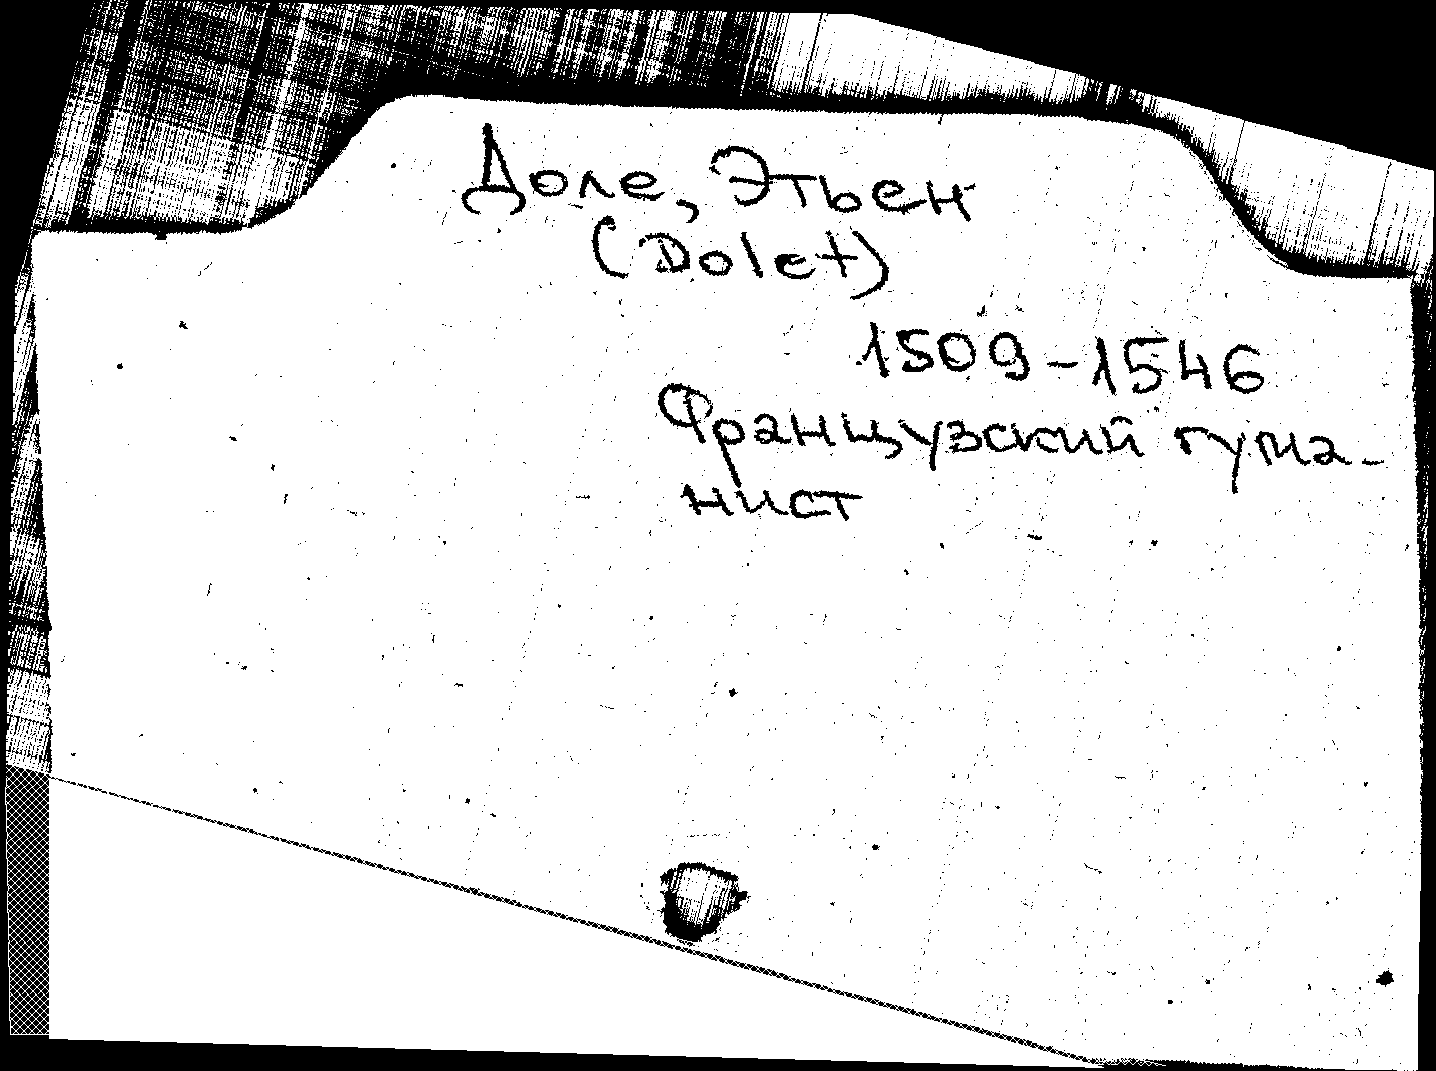 Доле, Этьен
(Dolet)
1509-1546
Французский гума-
нист